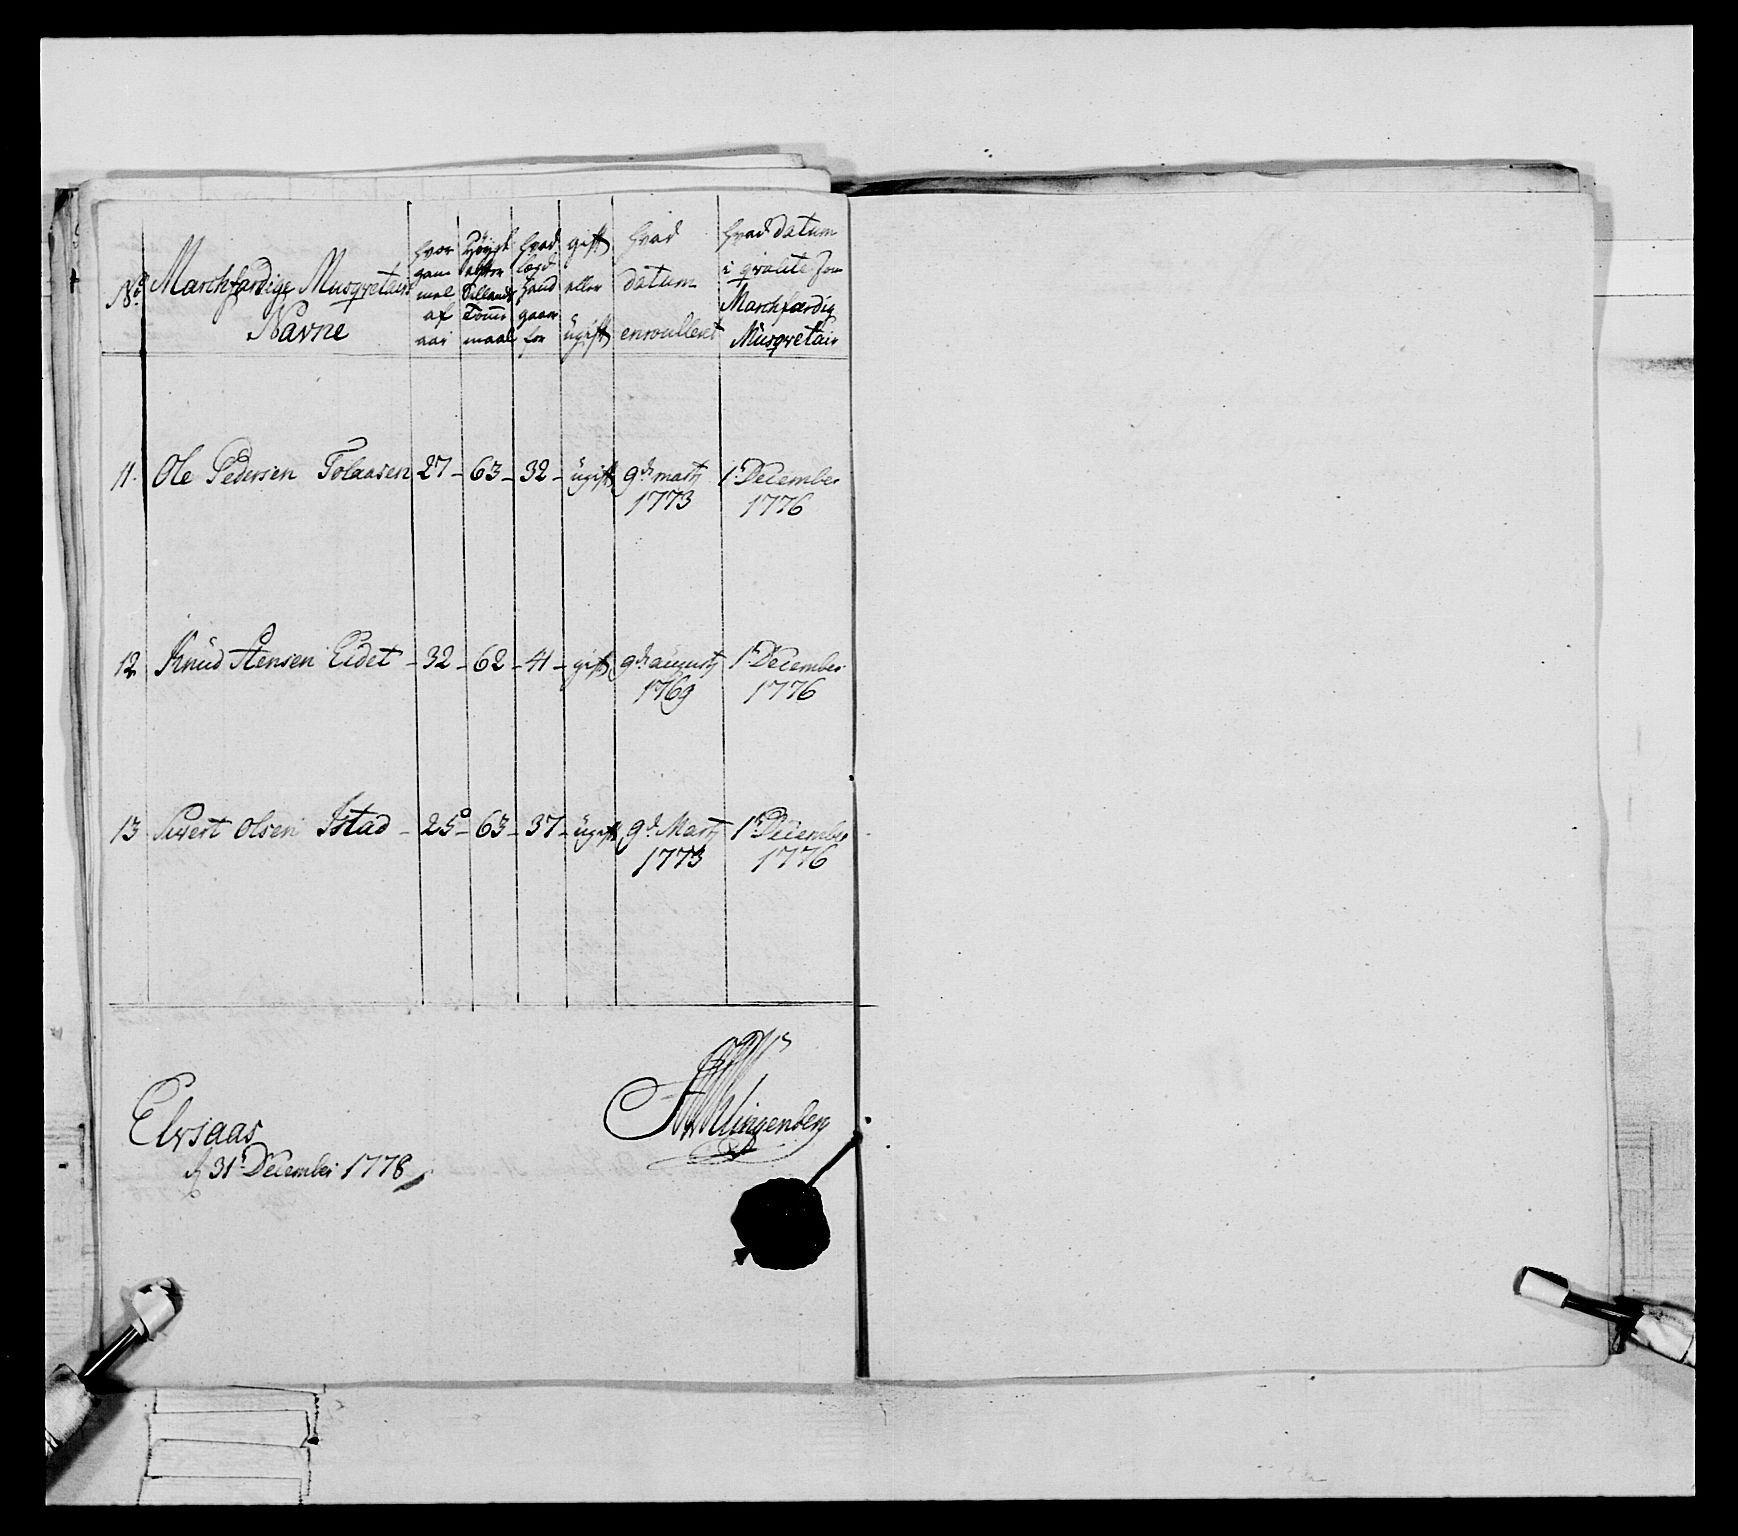 No
Marchfærdige Musqvetairs
Navne
hvor gam mel af aar
Höyde efter Sellands Tomme maal
hvad lægd hand gaar for
gift eller ugift
hvad datum enroulleret
hvad datum i qvalite som Marchfærdig Musqvetair
11. Ole Pedersen Tolaasen 27 – 63 – 32 – ugift 9de marty 1r December
1773 1776
12 Knud Stensen Eidet – 32 – 62 – 41 – gift 9de augusty 1r December
1769 1776
13 Sivert Olsen Istad – 25 – 63 – 37 – ugift 9de Marty 1r December
1773 1776
Elvsaas
d 31r December 1778
Klingenberg